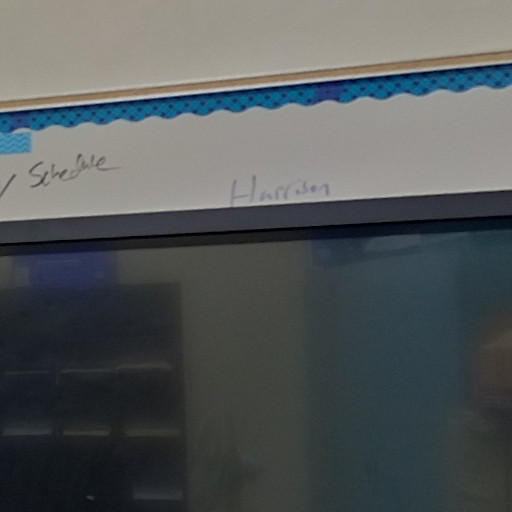 Schedule
Harrison